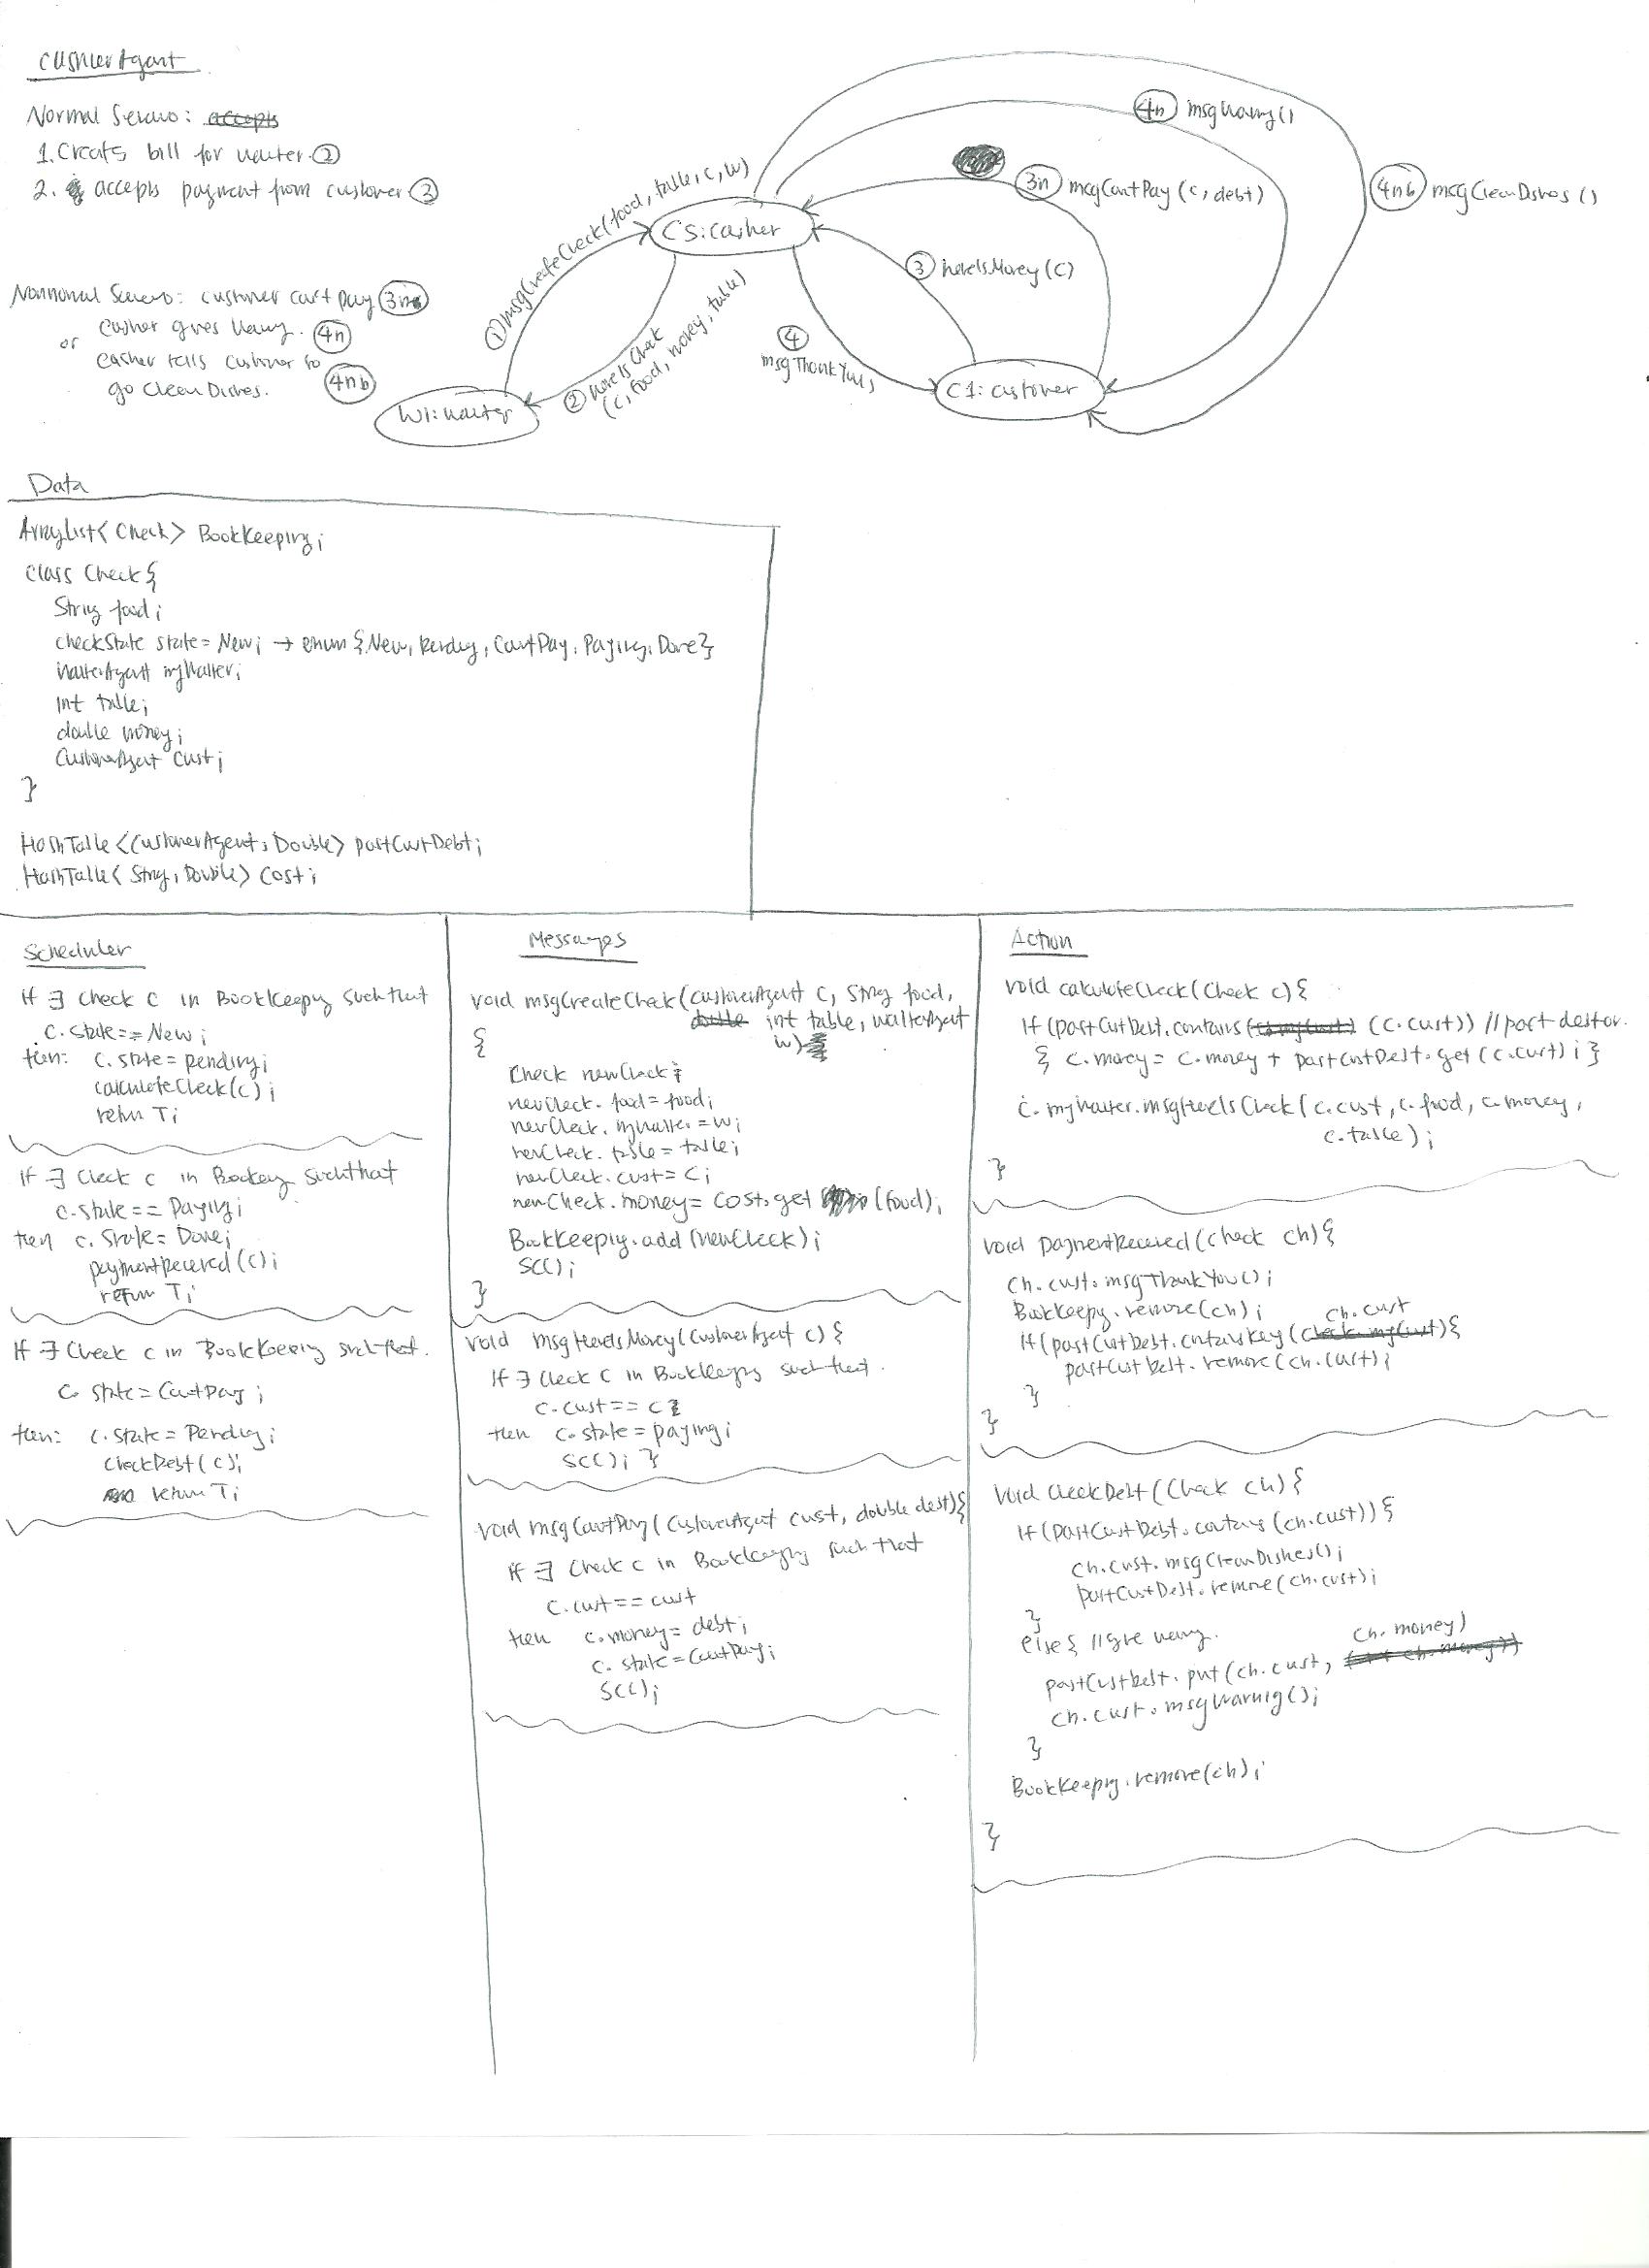 CashierAgent
Normal Scenario: accepts
1. Creates bill for waiter. ②
2. accepts payment from customer ③
Nonnormal Scenario: customer can't pay (3n)
or cashier gives warning. (4n)
cashier tells customer to
go clean Dishes. (4nb)
① msgCreateCheck(food, table, c, w)
② hereIsCheck
(c, food, money, table)
CS: cashier
W1: waiter
C1: customer
(4n) msgWarning()
(3n) msgCantPay (c, debt)
(4nb) msgCleanDishes ()
③ hereIsMoney (c)
④
msgThankYou()
Data
ArrayList<Check> BookKeeping;
Class Check {
String food;
checkState state = New; → enum {New, Pending, CantPay, Paying, Done}
WaiterAgent myWaiter;
int table;
double money;
CustomerAgent cust;
}
HashTable <CustomerAgent, Double> pastCustDebt;
HashTable < String, Double> Cost;
Scheduler
if ∃ Check c in BookKeeping such that
c.state == New;
then: c.state = pending;
calculateCheck(c);
return T;
if ∃ Check c in BooKeeping such that
c.state == Paying;
then c.state = Done;
paymentReceived (c);
return T;
If ∃ Check c in BookKeeping such that.
c. state = CantPay;
then: c.state = Pending;
CheckDebt(c);
return T;
Messages
void msgCreateCheck(customerAgent c, String food,
double int table, waiterAgent
w)
{
Check newCheck;
newCheck. food = food;
newCheck. myWaiter = w;
newCheck. table = table;
newCheck. cust = c;
newCheck. money = cost.get (food);
BookKeeping.add (newCheck);
SC();
}
void msgHereIsMoney (CustomerAgent c) {
If ∃ Check c in BookKeeping such that.
c.cust == c
then c.state = paying;
SC(); }
void msgCantPay (CustomerAgent cust, double debt){
if ∃ Check c in BookKeeping such that
c.cust == cust
then c.money = debt;
c. state = CantPay;
SC();
Action
void calculateCheck (Check c) {
If (pastCustDebt.contains (c.cust)) // past debtor.
{ c.money = c.money + pastCustDebt.get (c.cust); }
c.myWaiter.msgHereIsCheck (c.cust, c.food, c.money,
c.table);
}
void paymentReceived (check ch) {
ch.cust.msgThankYou();
BookKeeping.remove(ch);
ch.cust
If (pastCustDebt.containsKey (check.myCust) {
pastCustDebt.remove (ch.cust);
}
}
void CheckDebt (Check ch) {
If (PastCustDebt.contains (ch.cust)) {
ch.cust.msgCleanDishes();
pastCustDebt.remove (ch.cust);
}
else { // give warning.
ch.money)
pastCustDebt.put (ch.cust,
ch.cust.msgWarning();
}
BookKeeping.remove(ch);
}